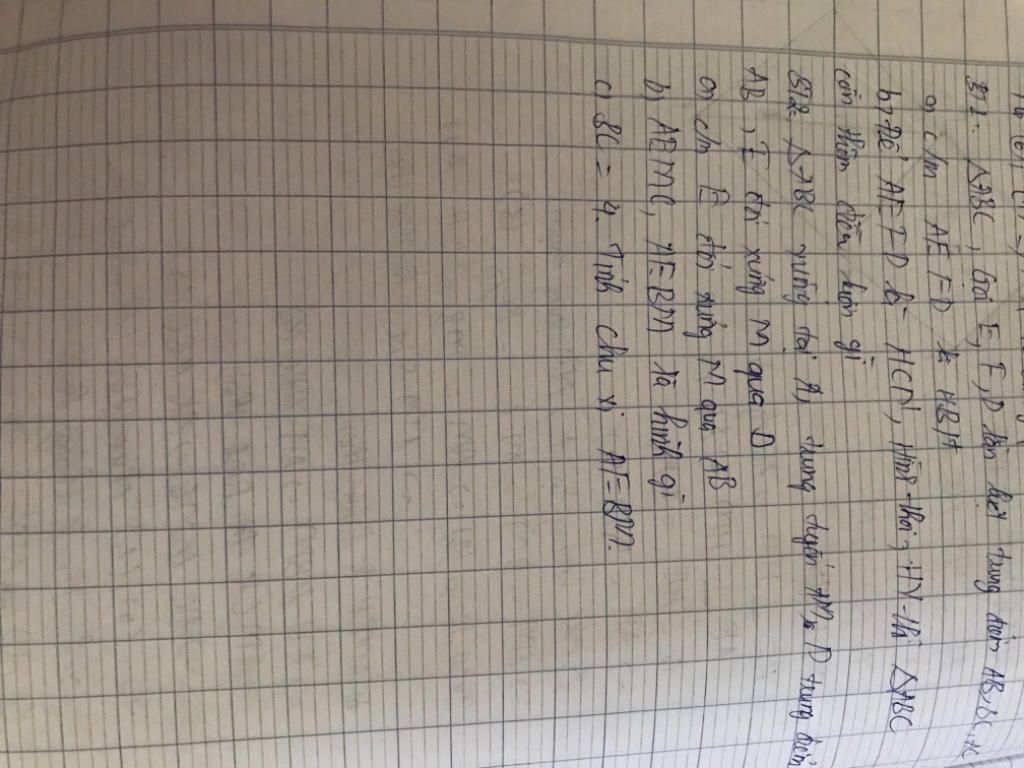 BT1: △ABC, Gọi E, F, D lần lượt trung điểm AB, BC, AC
a) c/m AEFD là HBH
b) Để AEFD là HCN, Hình thoi, HV thì △ABC
cần thêm điều kiện gì
BT2: △ABC vuông tại A, trung tuyến AM, D trung điểm
AB, E đối xứng M qua D
a) c/m E đối xứng M qua AB
b) AEMC, AEBM là hình gì
c) BC = 4. Tính chu vi AEBM.